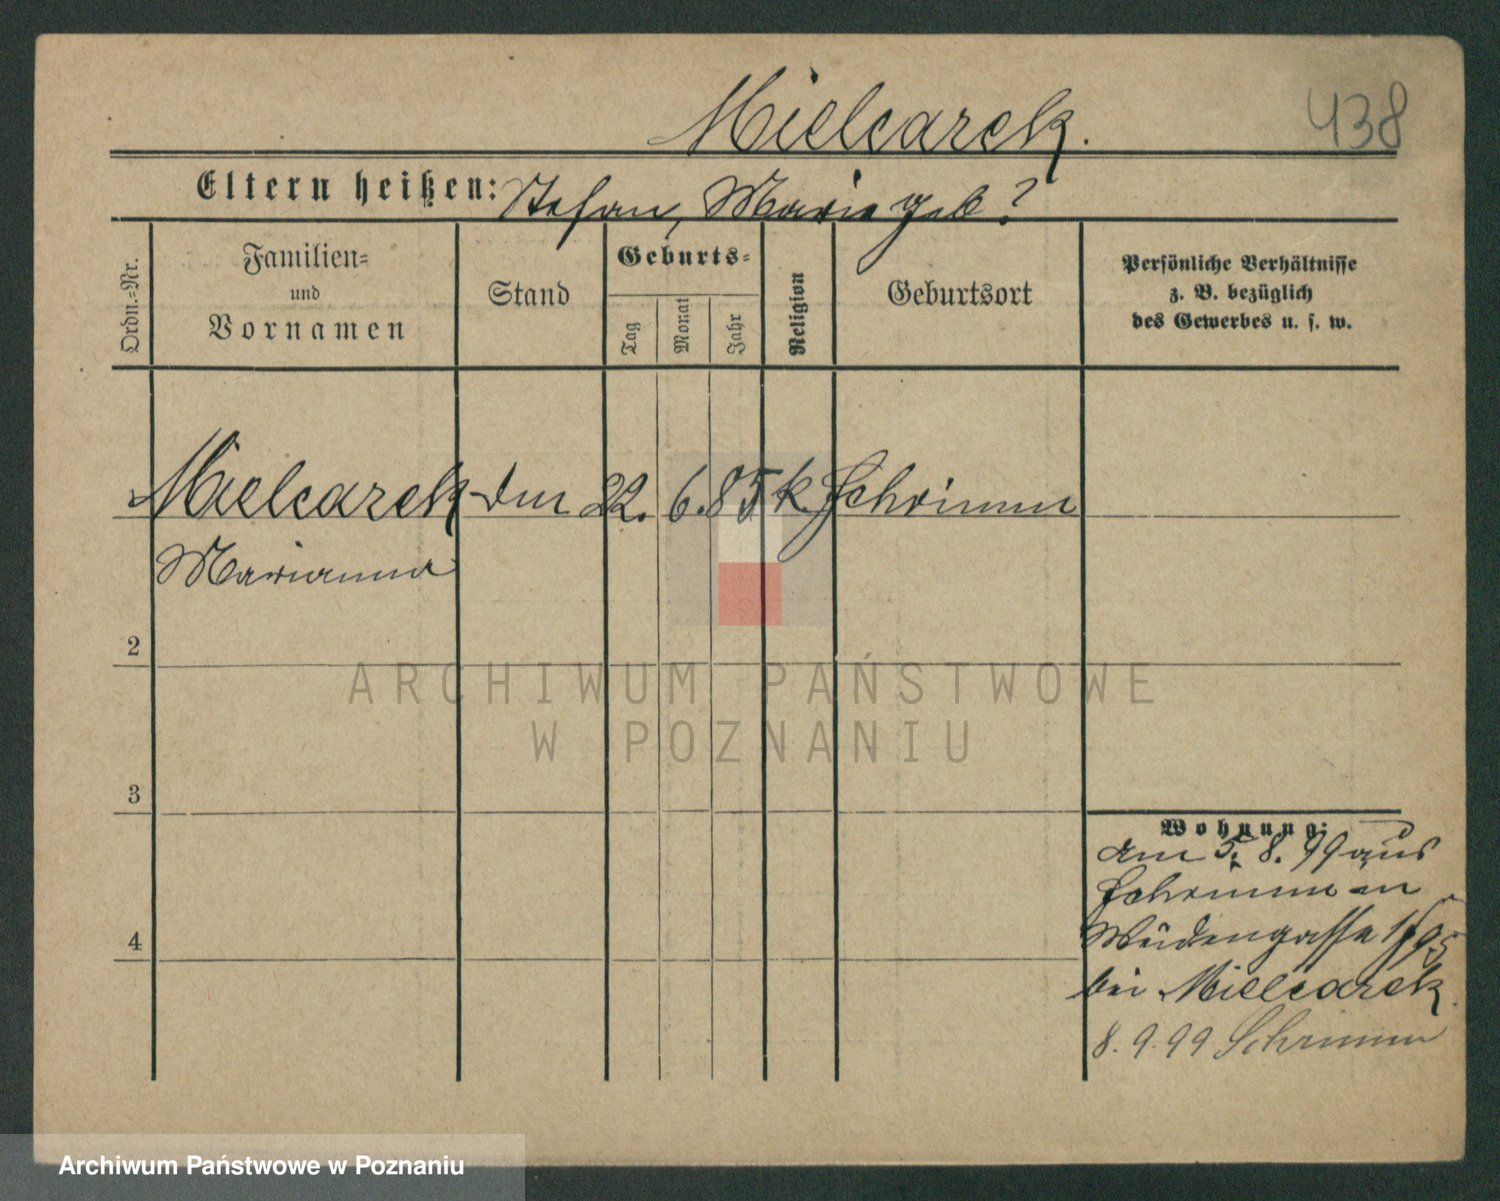 Mielcarek.
438
Eltern heißen: Stefan, Marie geb?
Ordn.=Nr.
Familien=
und
Vornamen
Stand
Geburts=
Tag
Monat
Jahr
Religion
Geburtsort
Persönliche Verhältnisse
z. B. bezüglich
des Gewerbes u. s. w.
Mielcarek 22. 6. 85 k. Schrimm
Marianna
2
3
4
Wohnung:
am 5. 8. 99 aus
Schrimm
bei Mielcarek
8. 9. 99 Schrimm
ARCHIWUM PAŃSTWOWE
W POZNANIU
Archiwum Państwowe w Poznaniu